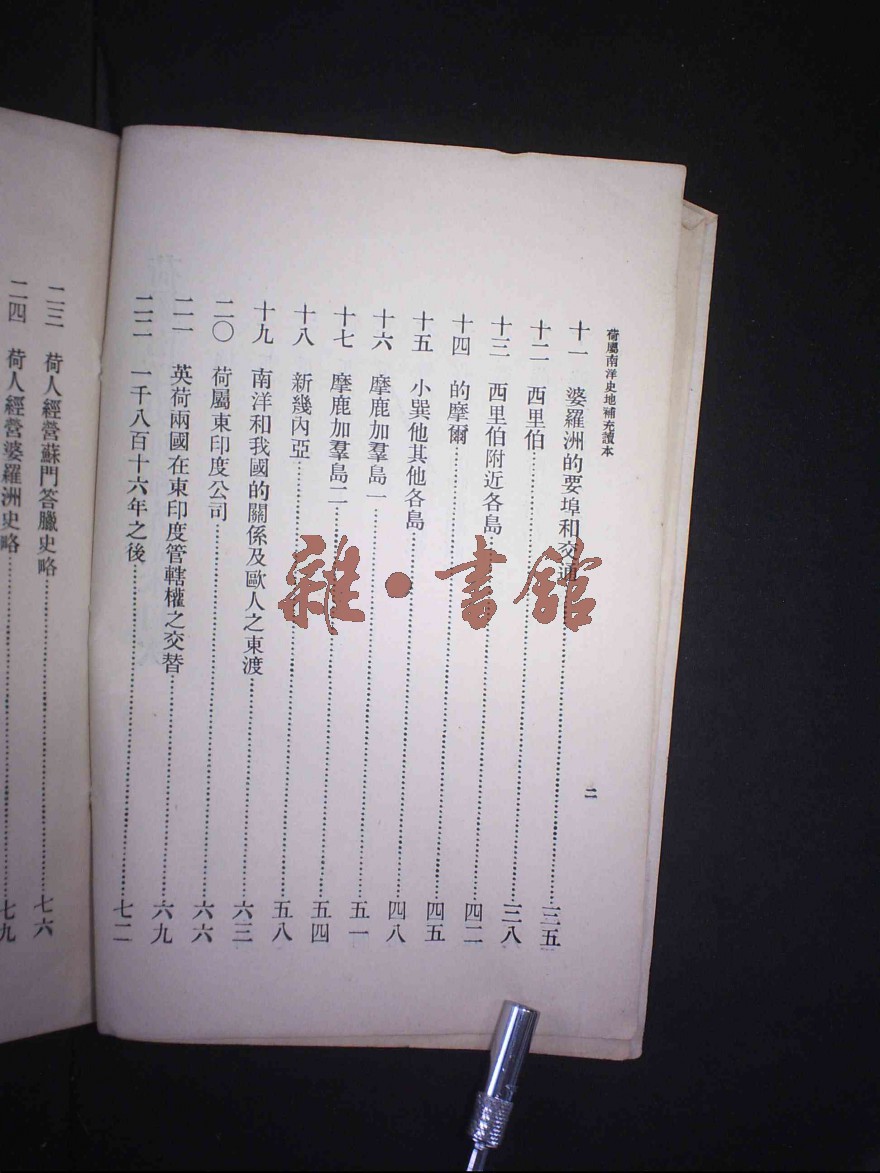 荷屬南洋史地補充讀本
二
十一 婆羅洲的要埠和交通…………三五
十二 西里伯…………三八
十三 西里伯附近各島…………四二
十四 的摩爾…………四五
十五 小巽他其他各島…………四八
十六 摩鹿加羣島一…………五一
十七 摩鹿加羣島二…………五四
十八 新幾內亞…………五八
十九 南洋和我國的關係及歐人之東渡…………六三
二〇 荷屬東印度公司…………六六
二一 英荷兩國在東印度管轄權之交替…………六九
二二 一千八百十六年之後…………七二
二三 荷人經營蘇門答臘史略…………七六
二四 荷人經營婆羅洲史略…………七九
雜·書館